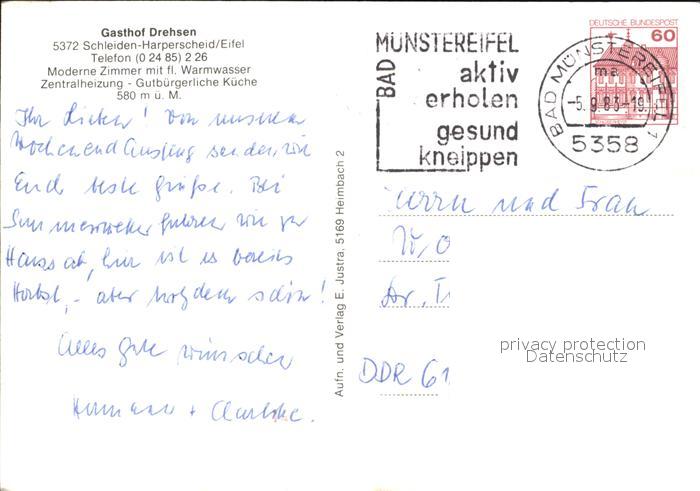 Gasthof Drehsen
5372 Schleiden-Harperscheid/Eifel
Telefon (0 24 85) 2 26
Moderne Zimmer mit fl. Warmwasser
Zentralheizung - Gutbürgerliche Küche
580 m ü. M.
Ihr Lieben! Von unserem
Wochenendausflug senden wir
Euch beste Grüße. Bei
Sommerwetter fuhren wir zu
Hause ab, hier ist es bereits
Herbst, - aber trotzdem schön!
Alles Gute wünschen
Hermann +
Aufn. und Verlag E. Justra, 5169 Heimbach 2
BAD MÜNSTEREIFEL
aktiv
erholen
gesund
kneippen
BAD MÜNSTEREIFEL 1
ma
-5.9.83-19
5358
DEUTSCHE BUNDESPOST
60
Herrn und Frau
Dr.
DDR 61
privacy protection
Datenschutz